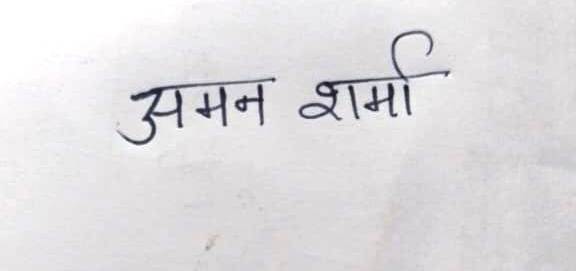 अमन शर्मा